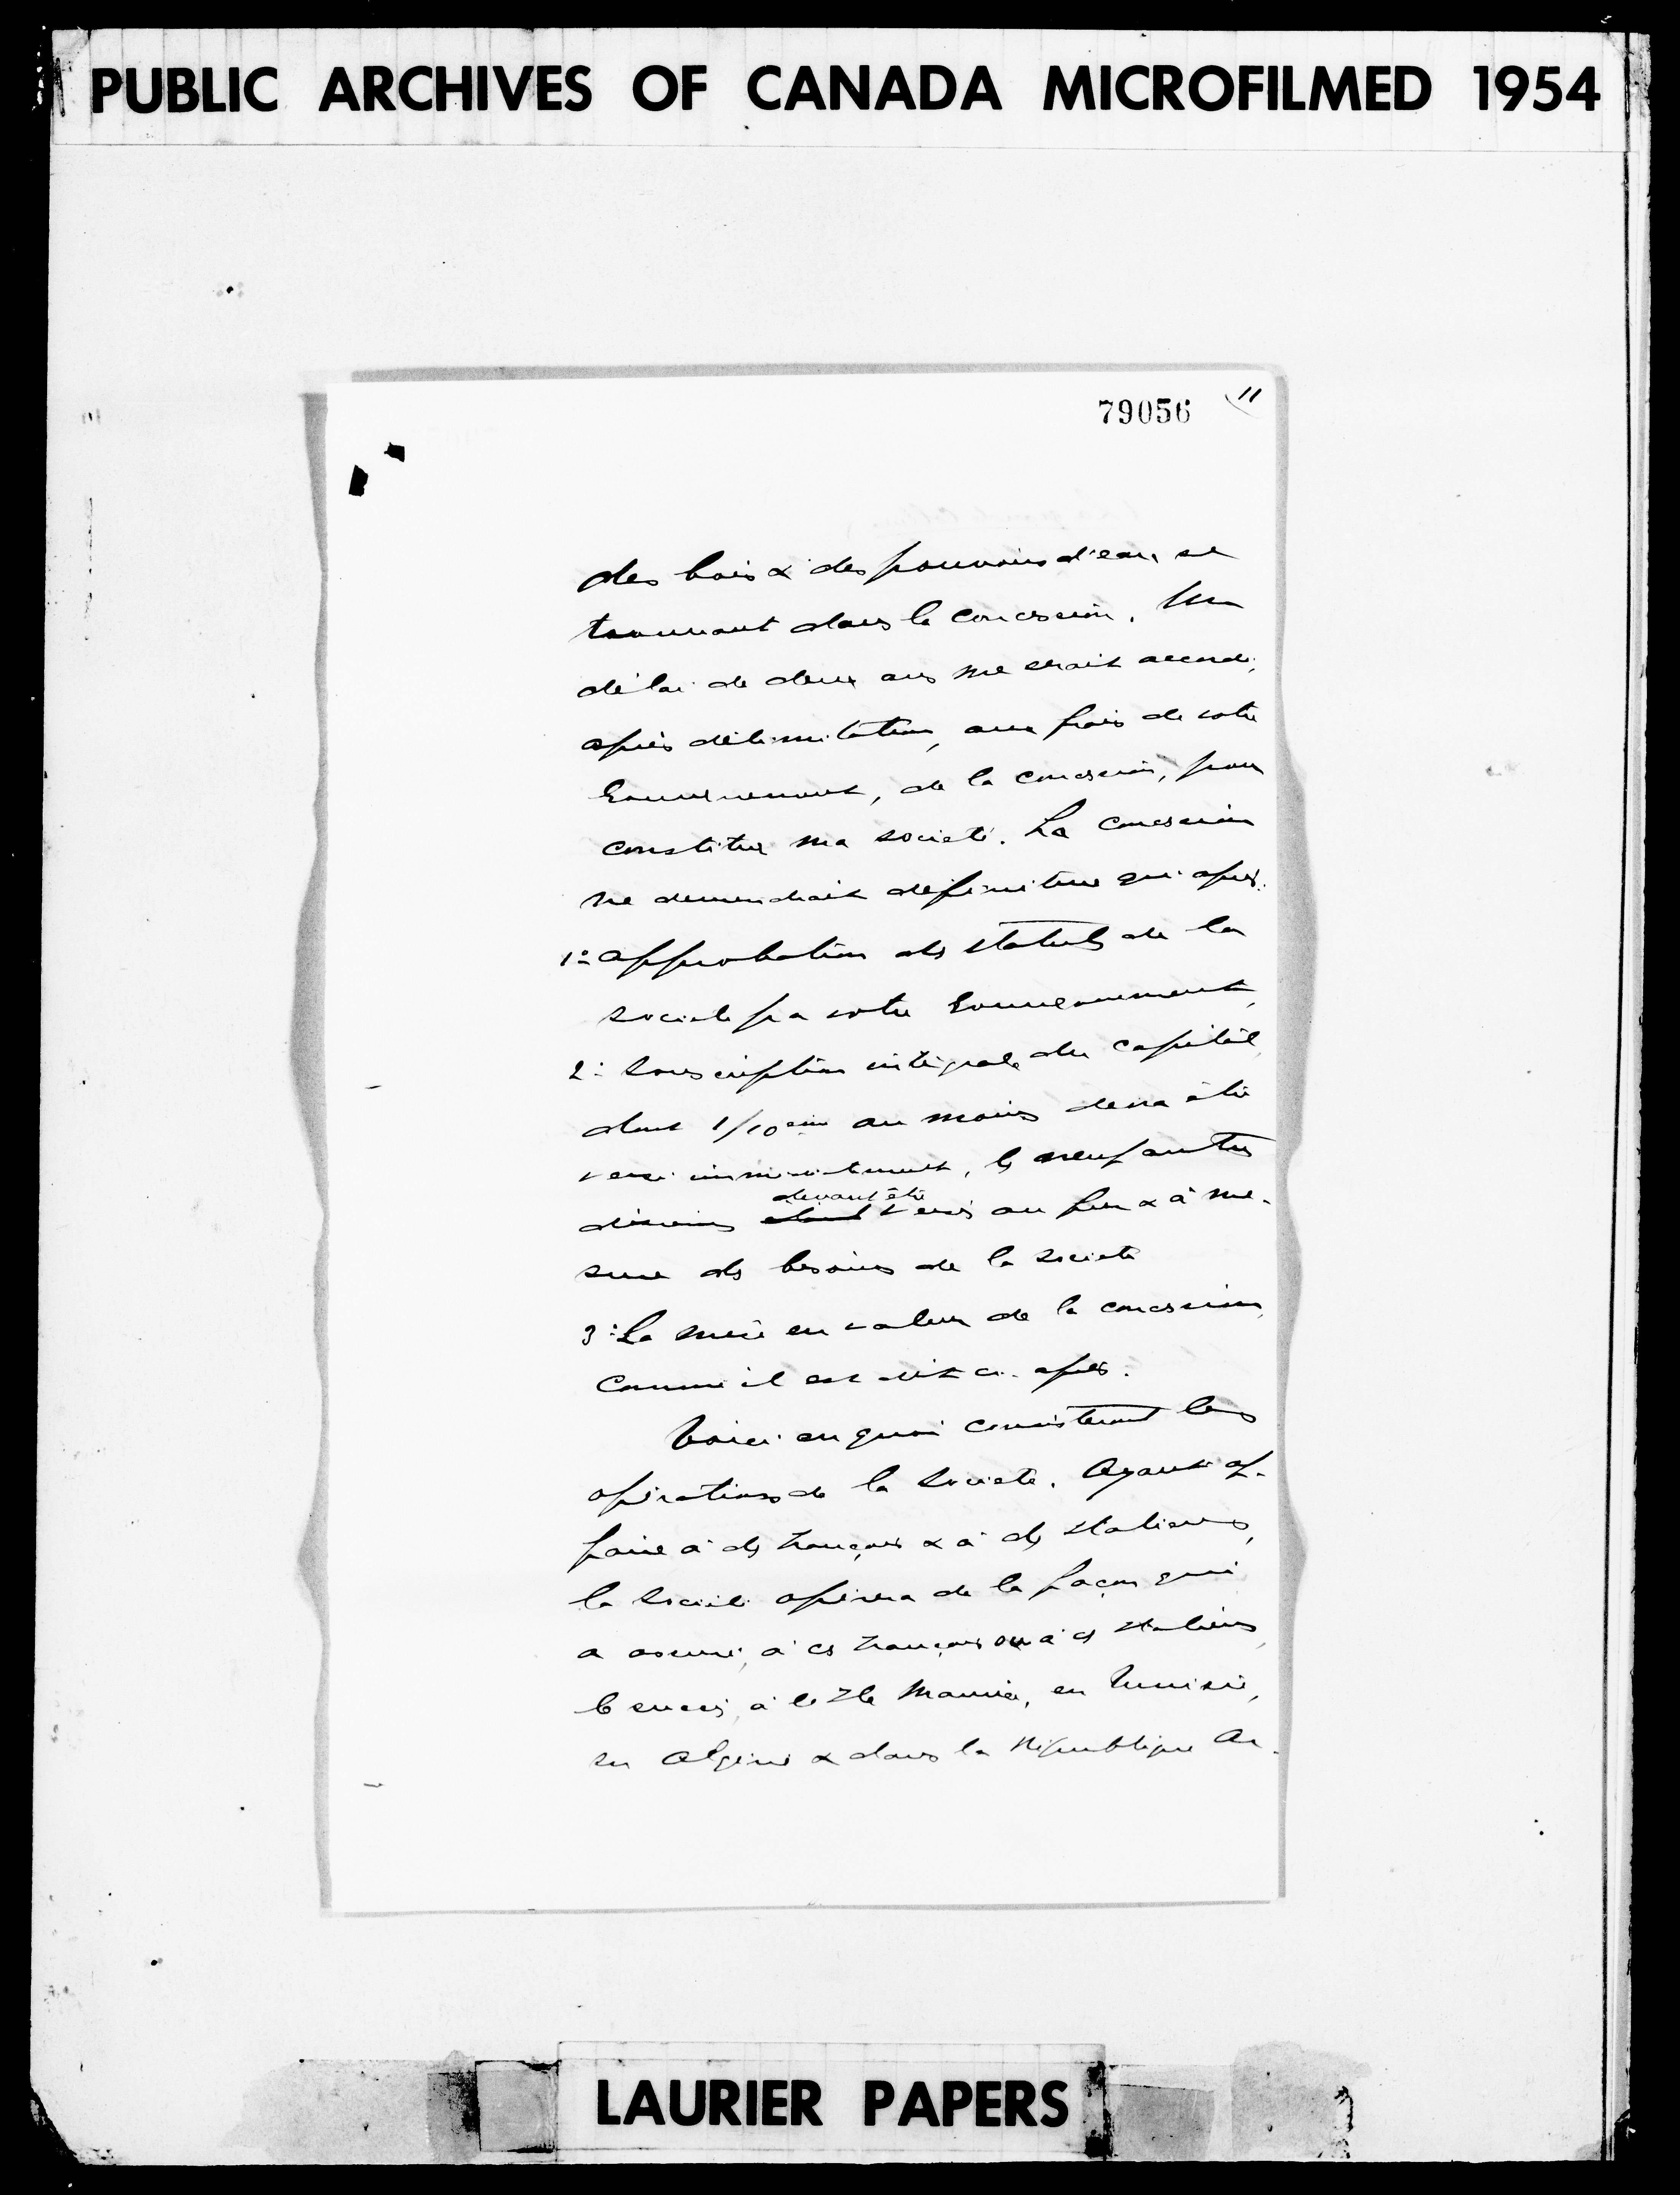 PUBLIC ARCHIVES OF CANADA MICROFILMED 1954
79056 11
des bois & des pouvoirs d'eau se
trouvant dans la concession. Un
délai de deux ans me serait accordé,
après délimitation, aux frais de votre
Gouvernement, de la concession, pour
constituer ma société. La concession
ne deviendrait définitive qu'après:
1° approbation des statuts de la
société par votre Gouvernement,
2° Souscription intégrale du capital,
dont 1/10ème au moins devra être
versé immédiatement, les neuf autres
devant être
dixièmes étant versés au fur & à me-
sure des besoins de la société
3° La mise en valeur de la concession,
comme il est dit ci-après.
Voici en quoi consisteront les
opérations de la société. Ayant af-
faire à des Français & à des Italiens,
la société opérera de la façon qui
a assuré, à ces Français ou à ces Italiens,
le succès, à l'Ile Maurice, en Tunisie,
en Algérie & dans la République Ar-
LAURIER PAPERS